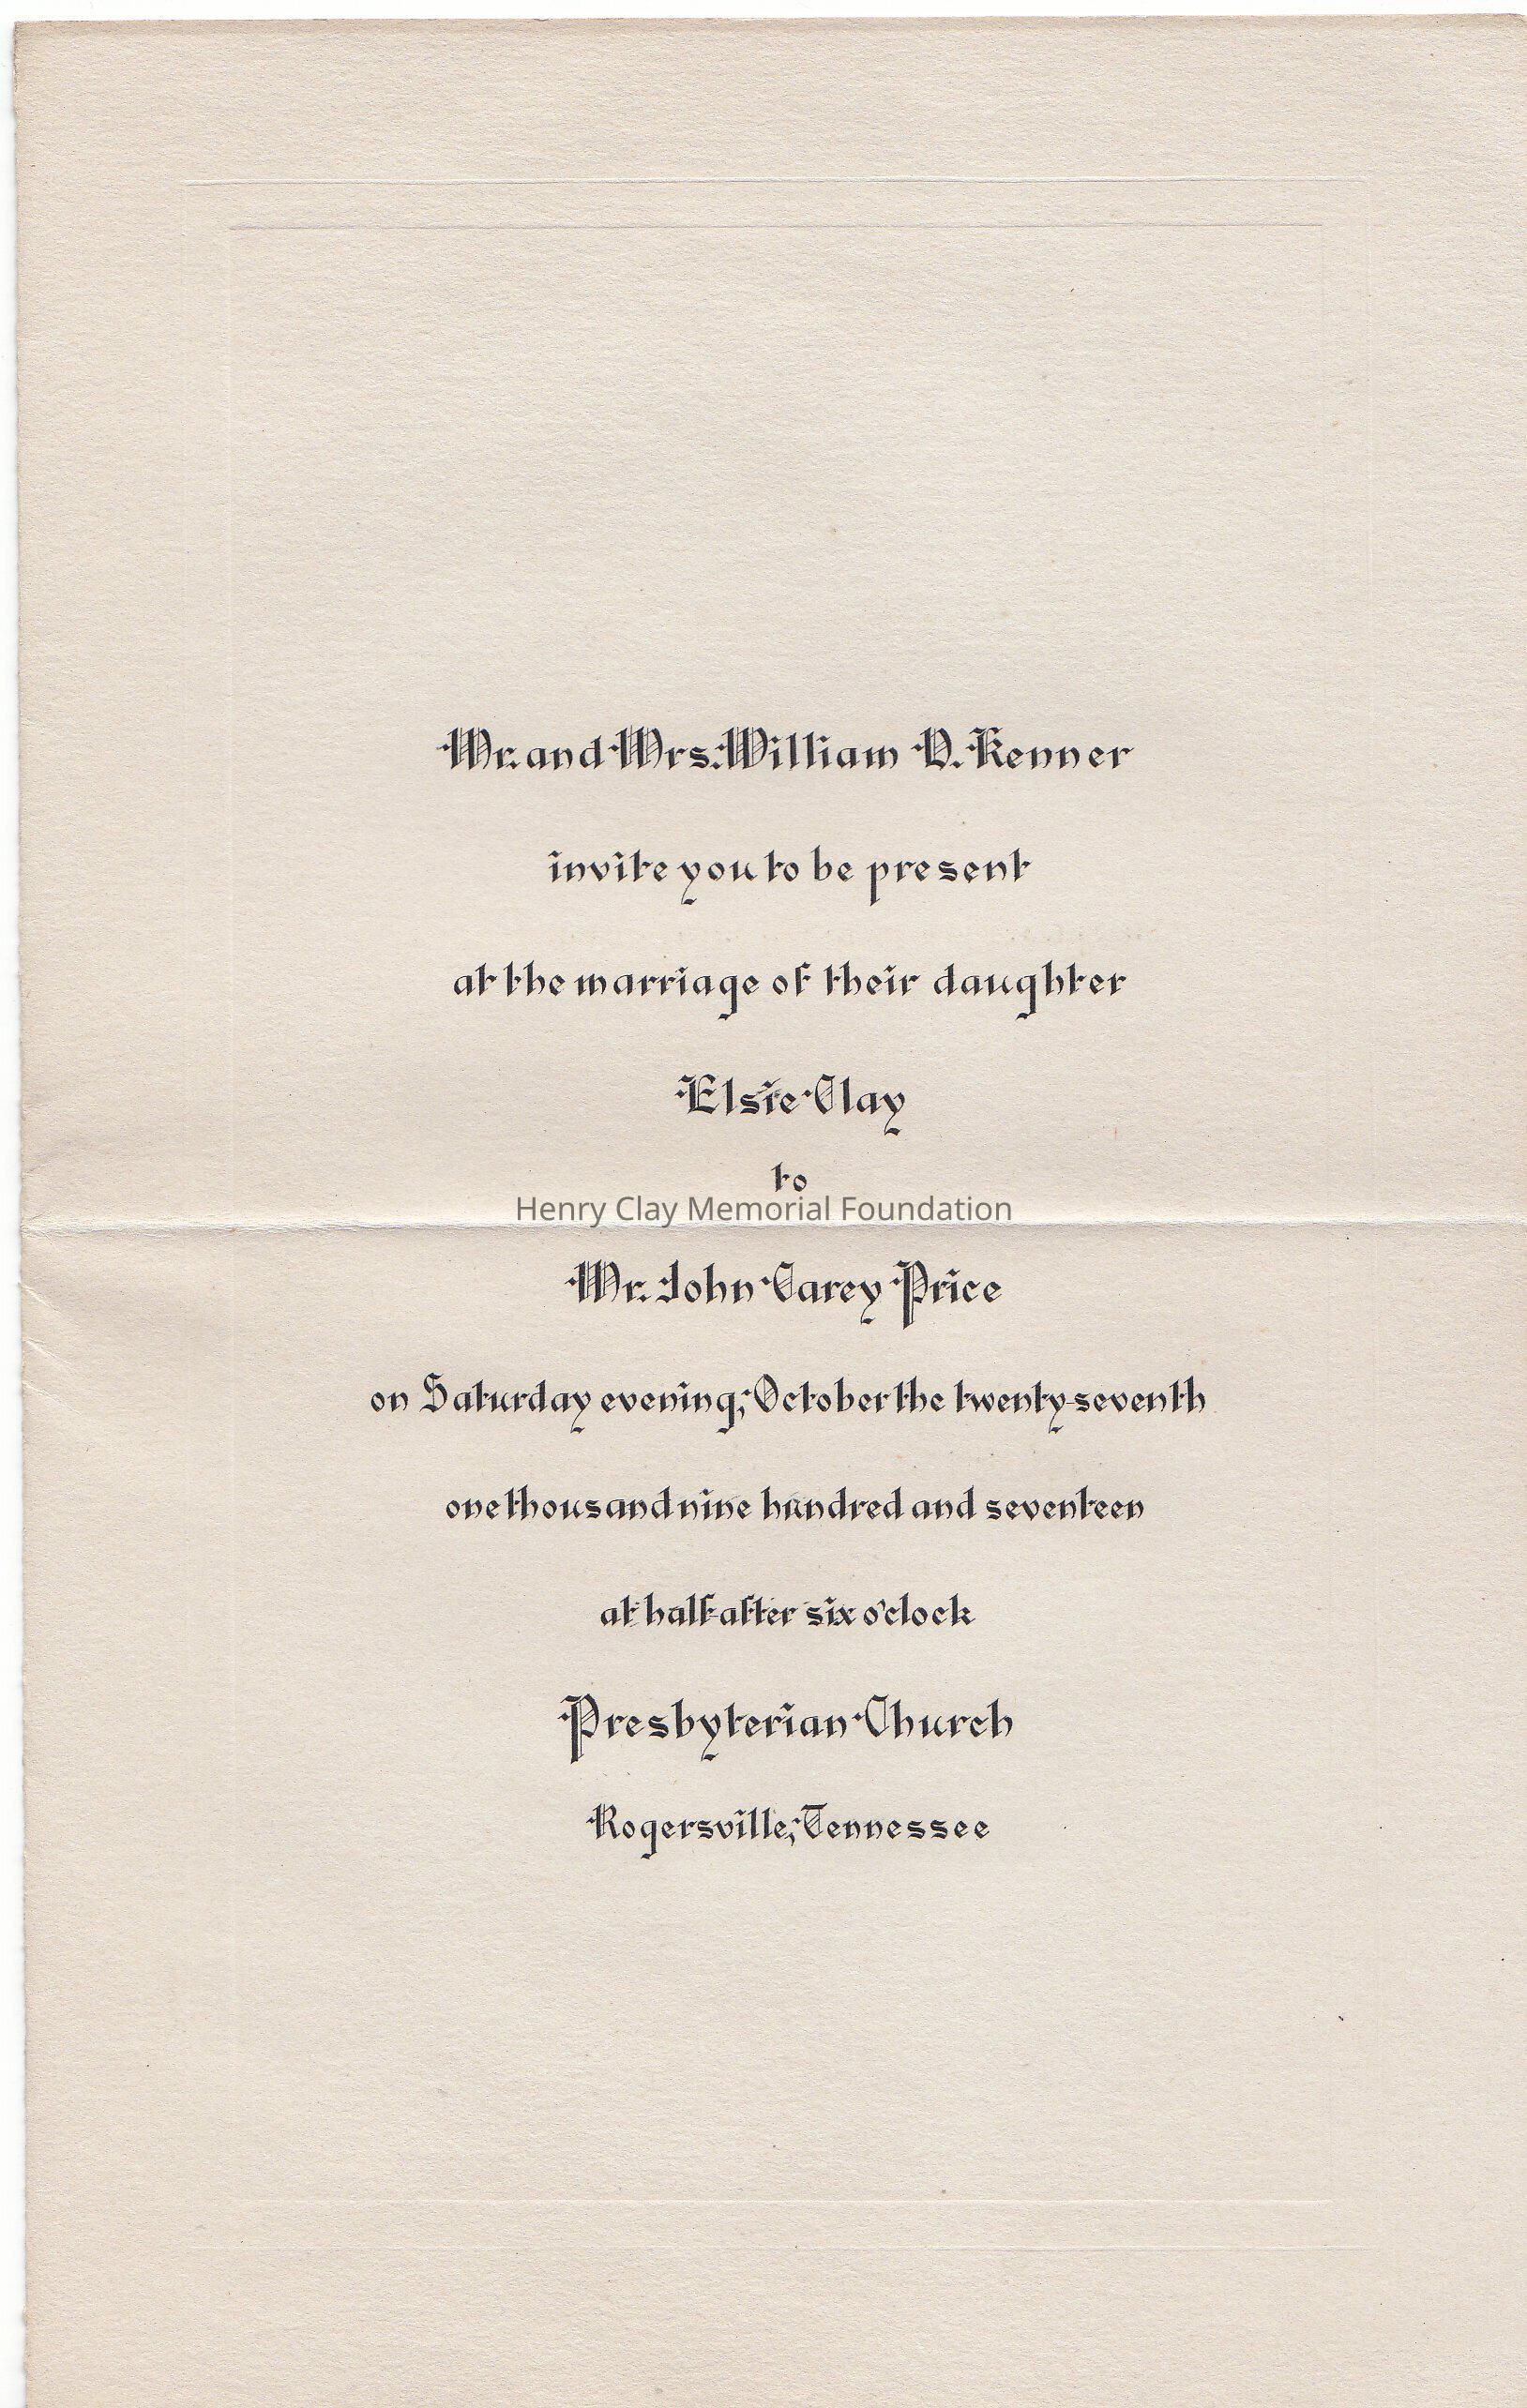 Mr. and Mrs. William D. Kenner
invite you to be present
at the marriage of their daughter
Elsie Clay
to
Henry Clay Memorial Foundation
Mr. John Carey Price
on Saturday evening, October the twenty-seventh
one thousand nine hundred and seventeen
at half after six o'clock
Presbyterian Church
Rogersville, Tennessee